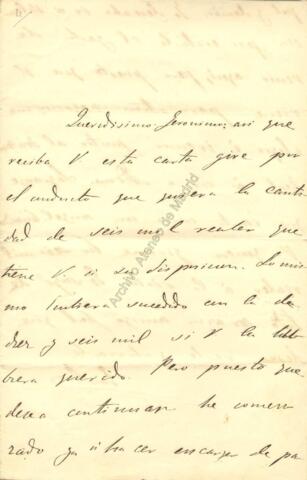 Queridisimo Geronimo: asi que
reciba V esta carta gire por
el conducto que quiera la canti
dad de seis mil reales que
tiene V. a su disposicion. Lo mis
mo hubiera sucedido con la de
diez y seis mil si V la hu
biera querido. Pero puesto que
desea continuar he comen
zado ya a hacer encargos de pa
Archivo Ateneo de Madrid